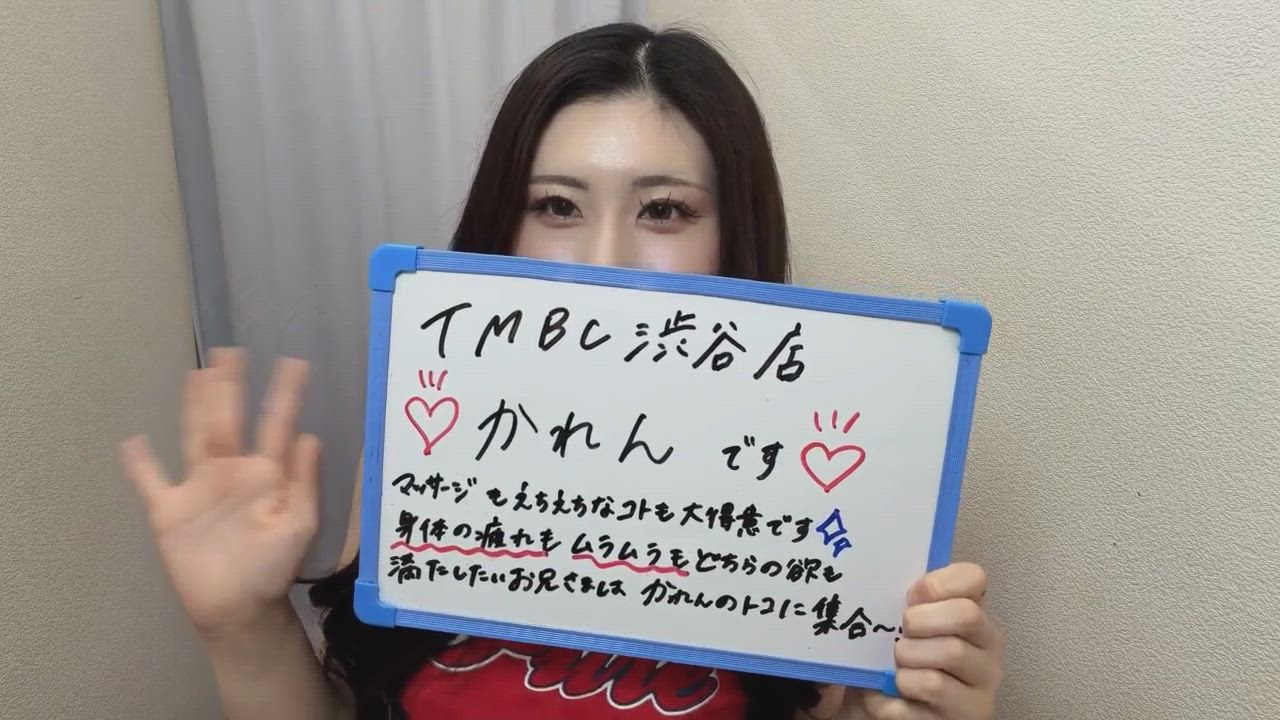 TMBC 渋谷店
かれん です
マッサージもえちえちなコトも大得意です
身体の疲れもムラムラもどちらの欲も
満たしたいお兄さまは かれんのトコに集合〜